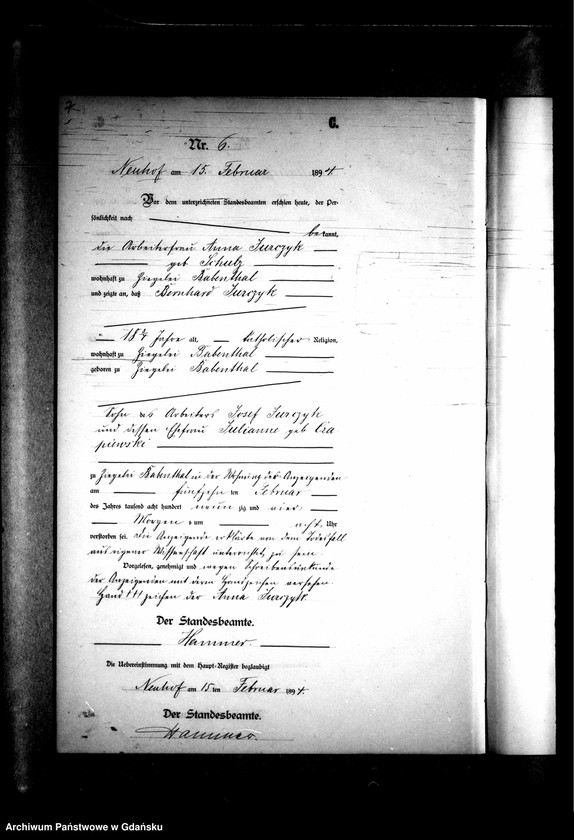 C.
Nr. 6.
Neuhof am 15. Februar 1894
Vor dem unterzeichneten Standesbeamten erschien heute, der Per-
sönlichkeit nach
bekannt,
die Arbeiterfrau Anna Jurczyk
geb Schulz
wohnhaft zu Ziegelei Babenthal
und zeigte an, daß Bernhard Jurczyk
Jahre alt, katholischer Religion,
wohnhaft zu Ziegelei Babenthal
geboren zu Ziegelei Babenthal
Sohn des Arbeiters Josef Jurczyk
und dessen Ehefrau Julianne geb Cza
piewski
zu Ziegelei Babenthal in der Wohnung der Anzeigenden
am fünfzehn ten Februar
des Jahres tausend acht hundert neun zig und vier
Morgens um acht Uhr
verstorben sei. Die Anzeigende erklärte von dem Todesfall
aus eigener Wissenschaft unterrichtet zu sein.
Vorgelesen, genehmigt und wegen Schreibensunkunde
der Anzeigenden mit deren Handzeichen versehen.
Hand ††† zeichen der Anna Jurczyk.
Der Standesbeamte.
Hammer.
Die Uebereinstimmung mit dem Haupt-Register beglaubigt
Neuhof am 15 ten Februar 1894.
Der Standesbeamte.
Hammer.
Archiwum Państwowe w Gdańsku